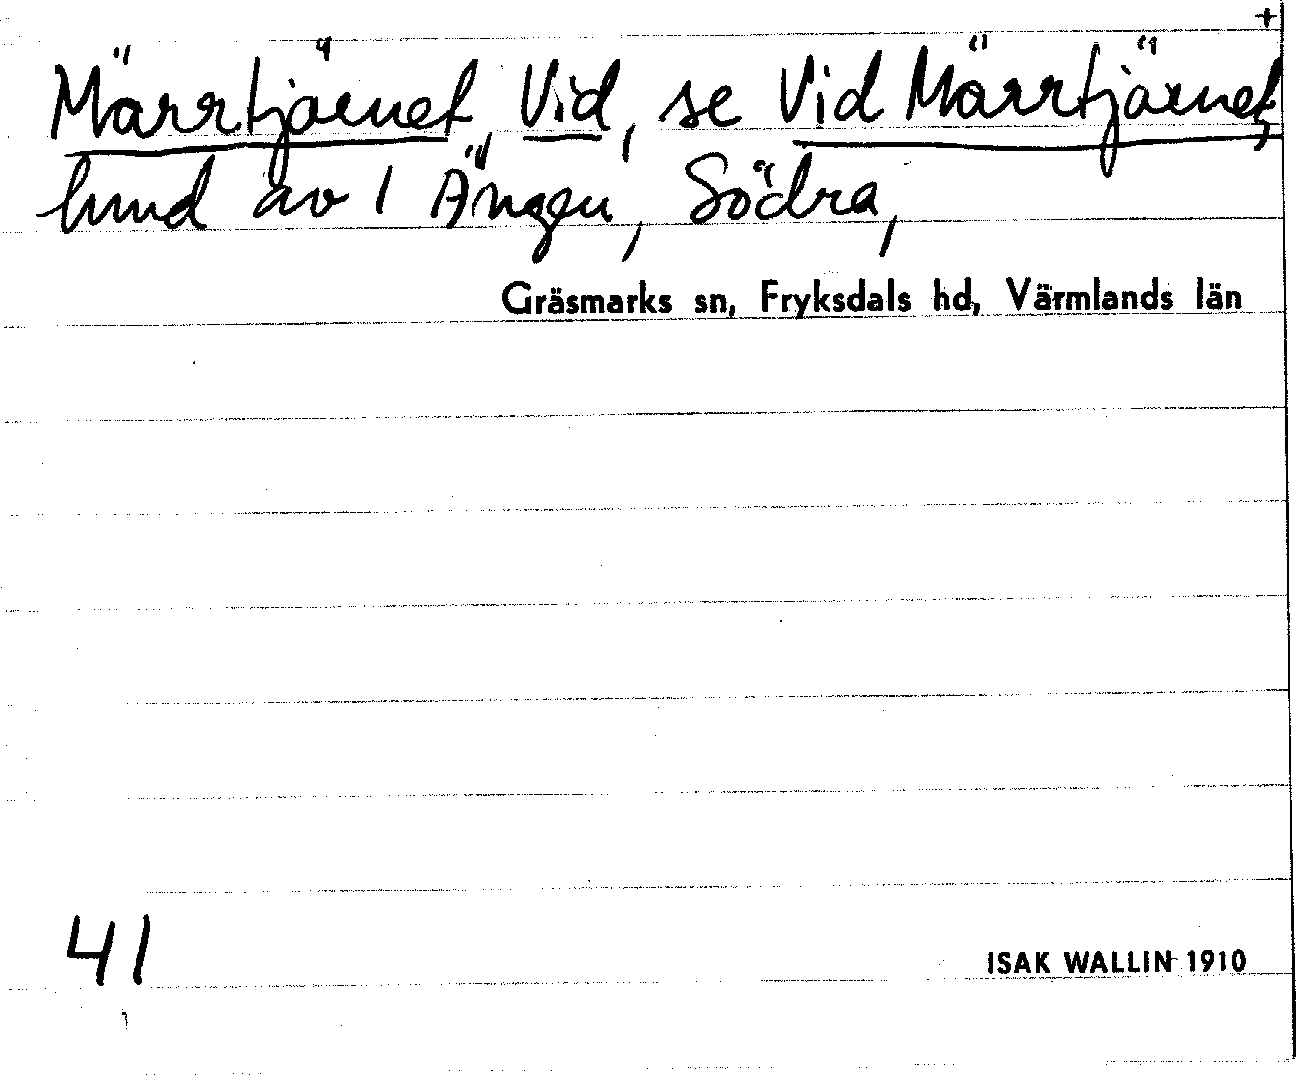 +
Märrtjärnet, Vid, se Vid Märrtjärnet,
hmd av 1 Ängen, Södra,
Gräsmarks sn, Fryksdals hd, Värmlands län
41
ISAK WALLIN 1910